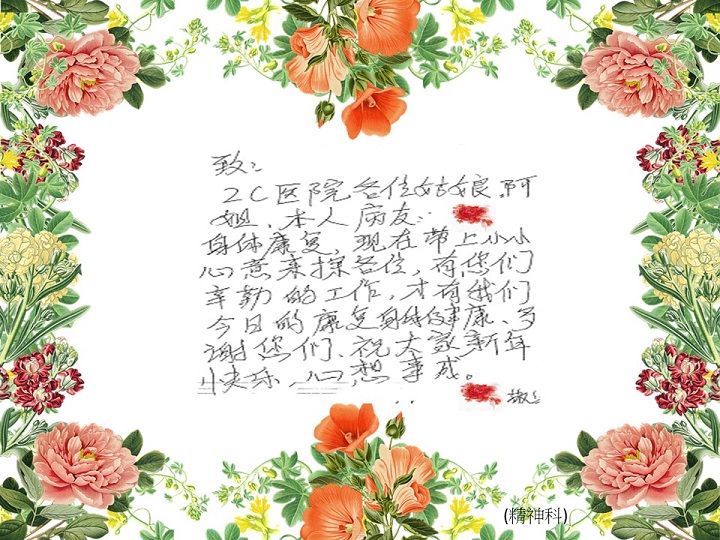 致：
2C医院各位姑娘.阿
姐、本人病友：
身体康复，现在带上小小
心意来探各位，有您们
辛勤的工作，才有我们
今日的康复身体健康、多
谢您们、祝大家新年
快乐 心想事成。
敬上
(精神科)